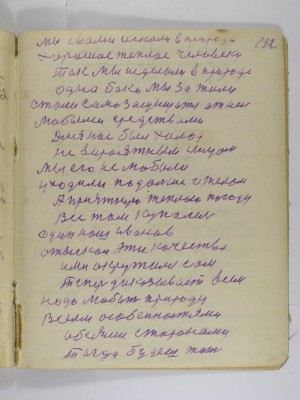 мы свами искали в природе
хорошое теплое человеки
Так мы неделали в природе
одна бока мы за жили
стали само защищать от неи
любыми средствами
Для нас был холод
не вероятным лицом
мы его не любили
уходили подальше отелом
А приятную теплою погоду
Все там купался
один наш Иванов
отыскал эти качества
ими окружил сам
Тепер доказывает всем
надо любит природу
Всеми особеностями
обеими сторонами
тогда будем жит